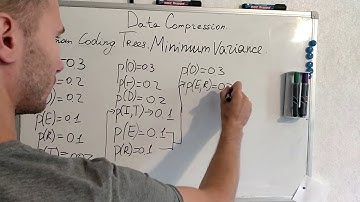 Data Compression.
Coding Trees. Minimum Variance.
=0.3
=0.2
=0.2
p(E)=0.1
p(R)=0.1
p(O)=0.3
=0.2
p(D)=0.2
p(I,T)→0.1
p(E)=0.1
p(R)=0.1
p(O)=0.3
p(E,R)=0.2